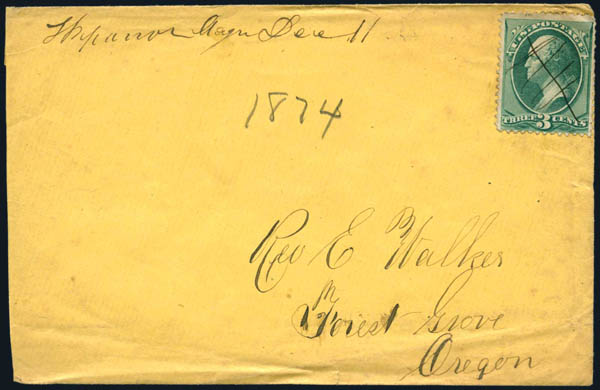 Dec 11
1874
U.S. POSTAGE
THREE 3 CENTS
Rev E Walker
Forest Grove
Oregon